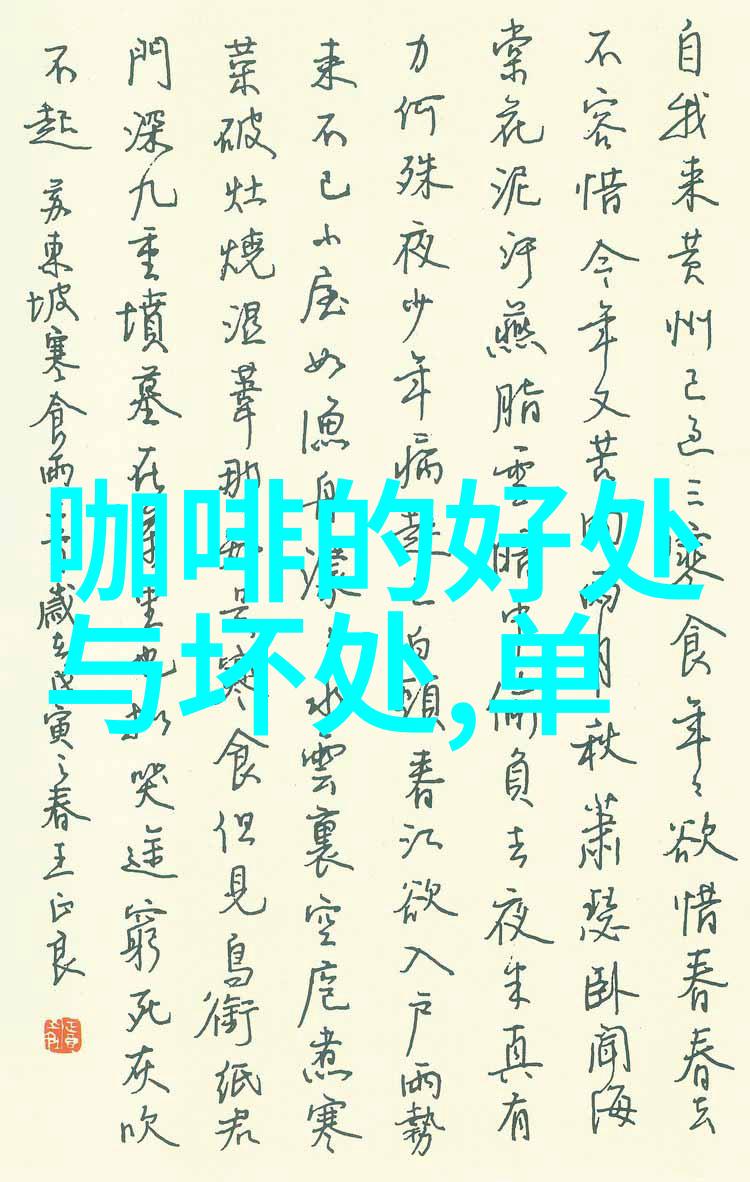 咖啡的好处
与坏处,单
自我来黄州已过三寒食年々欲惜春春去
不容惜今年又苦雨两月秋萧瑟卧闻海
棠花泥汙燕脂雪暗中偷负去夜半真有
力何殊夜少年病起已白頭春江欲入户雨勢
来不已小屋如渔舟濛々水雲裏空庖煮寒
菜破灶燒湿葦那是寒食但見烏銜纸君
門深九重墳墓在里也拟哭途窮死灰吹
不起 苏東坡寒食雨二首歲在戊寅之春王正良